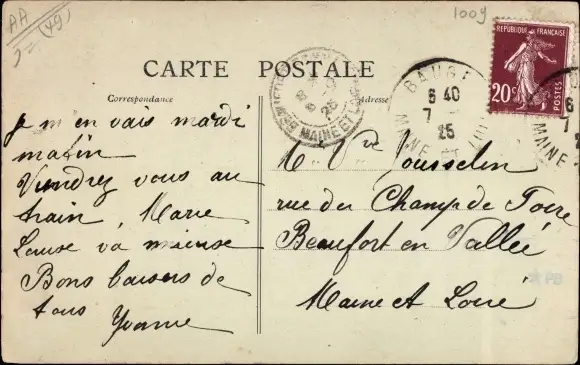 AA
(49)
1009
CARTE POSTALE
Correspondance
Adresse
REPUBLIQUE FRANÇAISE
20c
POSTES
BAUGE
6 40
7
25
MAINE ET
6
7
MAINE
MAINE ET L
25
Je m'en vais mardi
matin
Viendrez vous au
train, Marie
Louise va mieuse
Bons baisers de
tous Yvonne
M Vve Jousselin
rue du Champ de Foire
Beaufort en Vallée
Maine et Loire